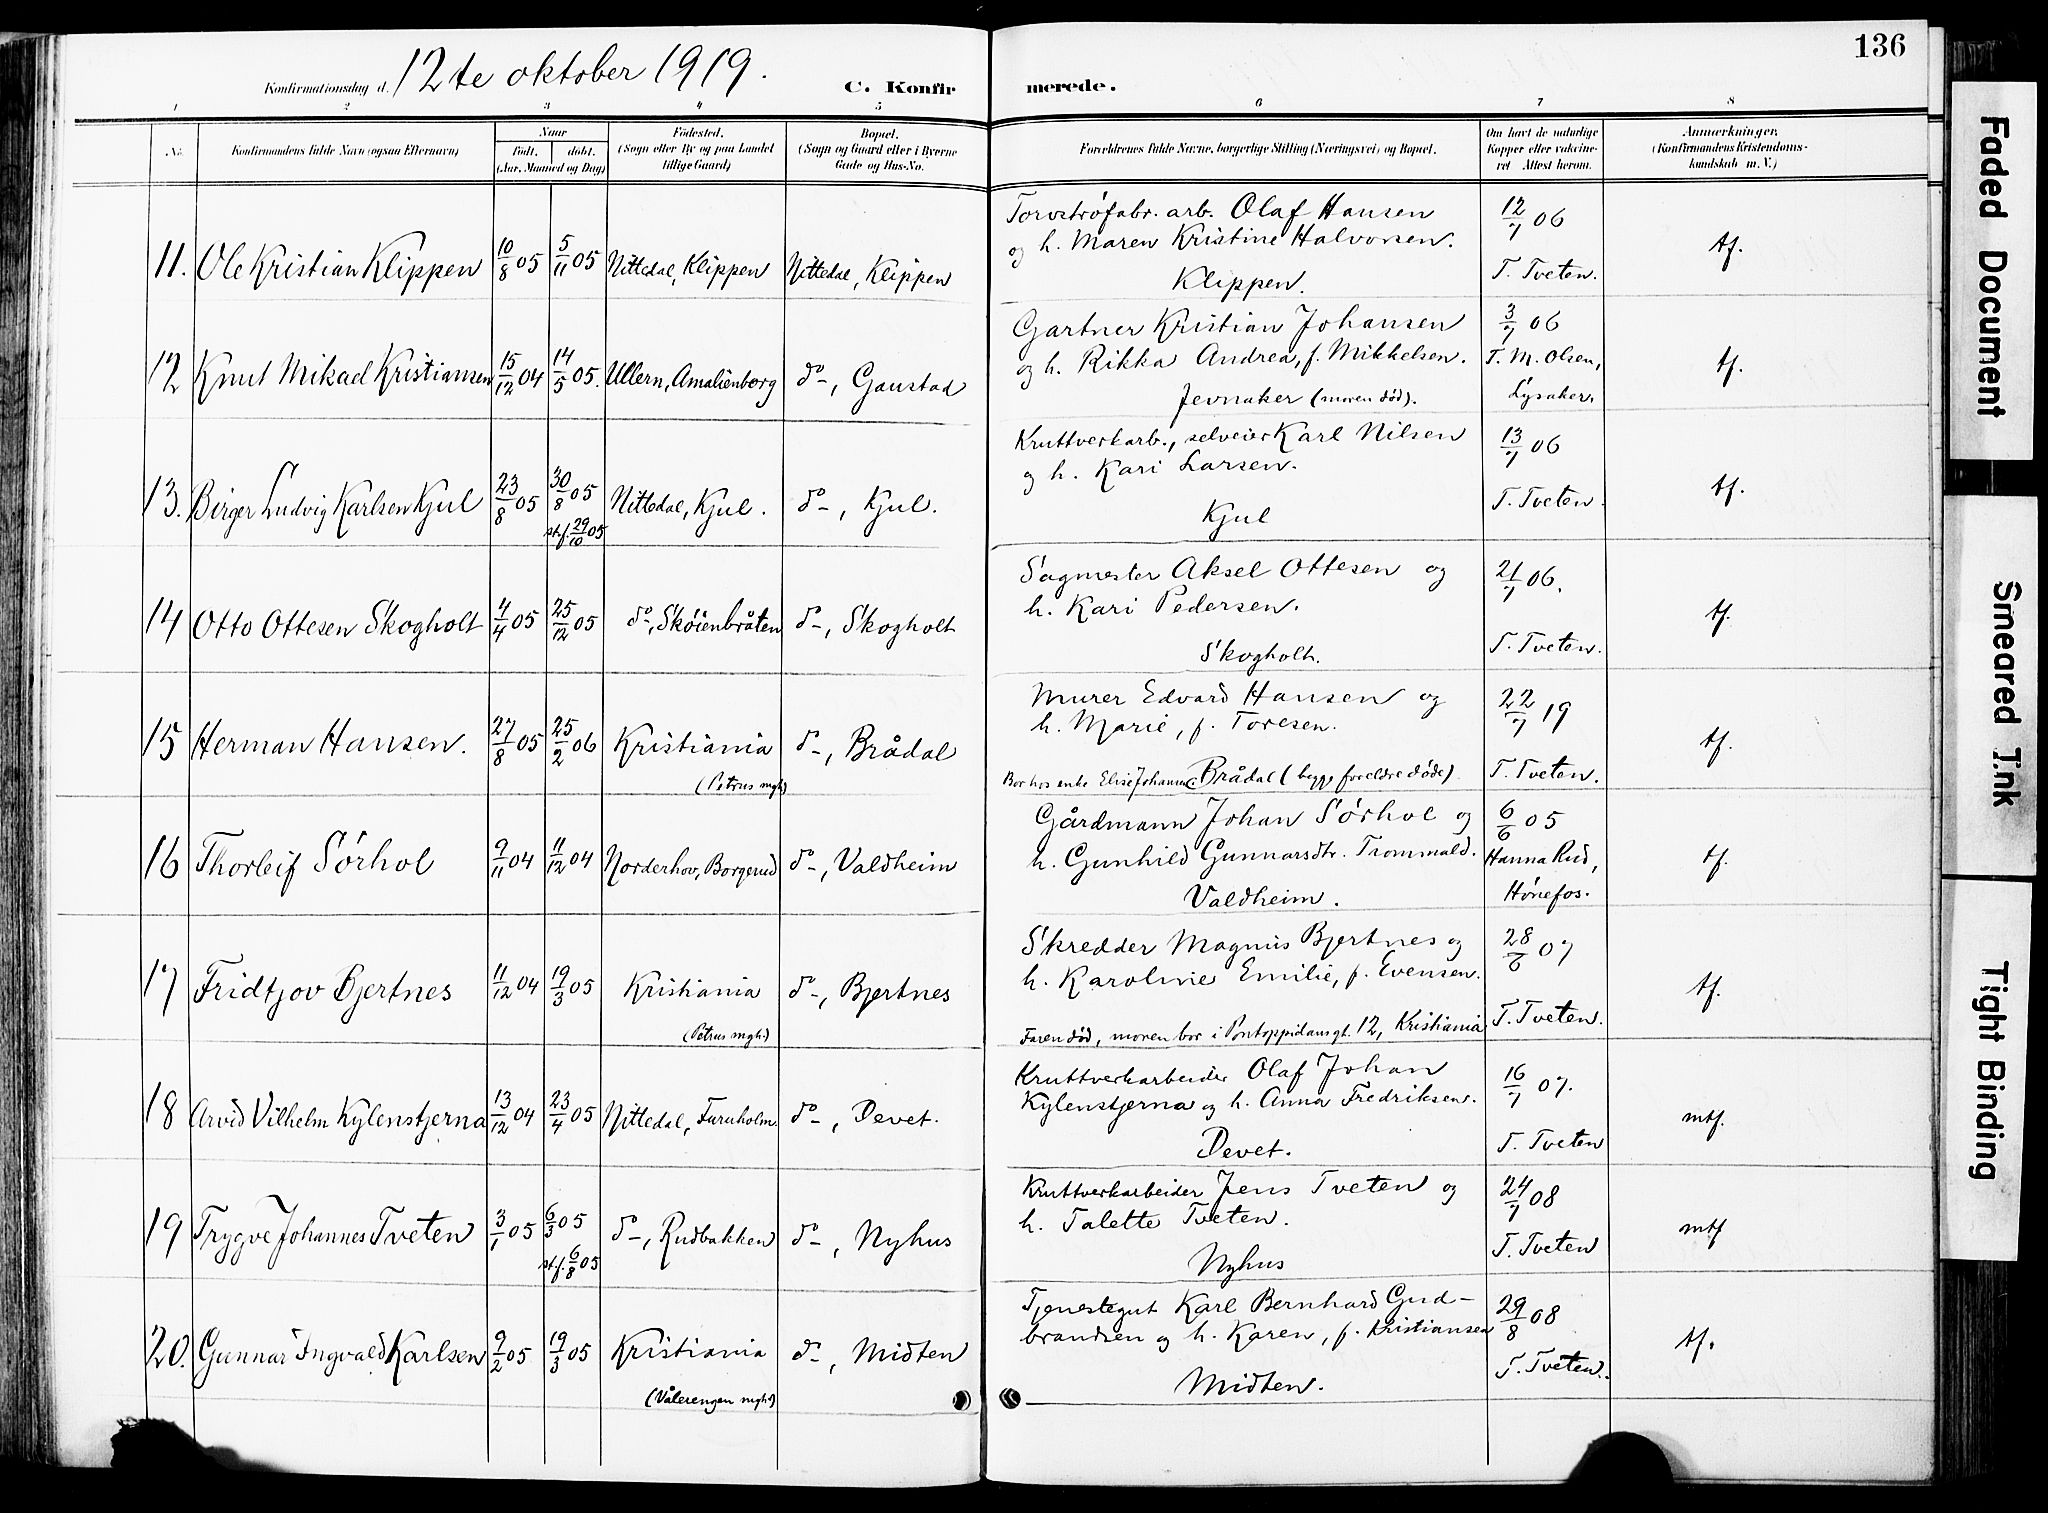 136
Konfirmationsdag d. 12te oktober 1919.
C. Konfirmerede.
1 2 3 4 5 6 7 8
No.
Konfirmandens fulde Navn (ogsaa Efternavn)
Naar
Født. døbt.
(Aar, Maaned og Dag)
Fødested.
(Sogn eller By og paa Landet
tillige Gaard)
Bopæl.
(Sogn og Gaard eller i Byerne
Gade og Hus-No.
Forældrenes fulde Navne, borgerlige Stilling (Næringsvei) og Bopæl.
Om havt de naturlige
Kopper eller vakcine-
ret Attest herom.
Anmærkninger.
(Konfirmandens Kristendoms-
kundskab m. V.)
11. Ole Kristian Klippen 10/8 05 5/11 05 Nittedal, Klippen Nittedal, Klippen
Torvstrøfabr. arb. Olaf Hansen
og h. Maren Kristine Halvorsen.
Klippen.
12/7 06
T. Tveten.
tf.
12 Knut Mikael Kristiansen 15/12 04 14/5 05. Ullern, Amalienborg do-, Gaustad
Gartner Kristian Johansen
og h. Rikka Andrea, f. Mikkelsen.
Jevnaker (moren død).
3/7 06
T. M. Olsen,
Lysaker.
tf.
13. Birger Ludvig Karlsen Kjul 23/8 05 30/8 05 Nittedal, Kjul. do-, Kjul.
st.f. 29/10 05
Kruttverkarb., selveier Karl Nilsen
og h. Kari Larsen.
Kjul
13/7 06
T. Tveten.
tf.
14 Otto Ottesen Skogholt 4/4 05 25/12 05 do-, Skøienbråten do-, Skogholt
Sagmester Aksel Ottesen og
h. Kari Pedersen.
Skogholt.
21/7 06.
T. Tveten.
tf.
15 Herman Hansen. 27/8 05 25/2 06 Kristiania do-, Brådal
(Petrus mgh)
Murer Edvard Hansen og
h. Marie, f. Toresen.
Bor hos enke Elise Johannes. Brådal (begge foreldre døde).
22/7 19
T. Tveten.
tf.
16 Thorleif Sørhol 9/11 04 11/12 04 Norderhov, Borgerud do-, Valdheim
Gårdmann Johan Sørhol og
h. Gunhild Gunnarsdtr. Trommald.
Valdheim.
6/6 05
Hanna Rud,
Hønefos.
tf.
17 Fridtjov Bjertnes 11/12 04 19/3 05 Kristiania do-, Bjertnes
(Petrus mgh)
Skredder Magnus Bjertnes og
h. Karoline Emilie, f. Evensen.
Faren død, moren bor i Pontoppidansgt. 12, Kristiania
28/6 07
T. Tveten.
tf.
18 Arvid Vilhelm Kylenstjerna 13/12 04 23/4 05 Nittedal, Furuholm. do-, Devet.
Kruttverkarbeider Olaf Johan
Kylenstjerna og h. Anna Fredriksen.
Devet.
16/7 07.
T. Tveten
mtf.
19 Trygve Johannes Tveten 3/1 05 6/3 05 do-, Rudbakken do-, Nyhus
st.f. 6/8 05
Kruttverkarbeider Jens Tveten og
h. Talette Tveten.
Nyhus
24/7 08
T. Tveten
mtf
20. Gunnar Ingvald Karlsen 9/2 05 19/3 05 Kristiania do-, Midten
(Vålerengen mgh)
Tjenestegut Karl Bernhard Gud-
brandsen og h. Karen, f. Kristiansen
Midten.
29/8 08
T. Tveten.
tf.
Faded Document
Smeared Ink
Tight Binding